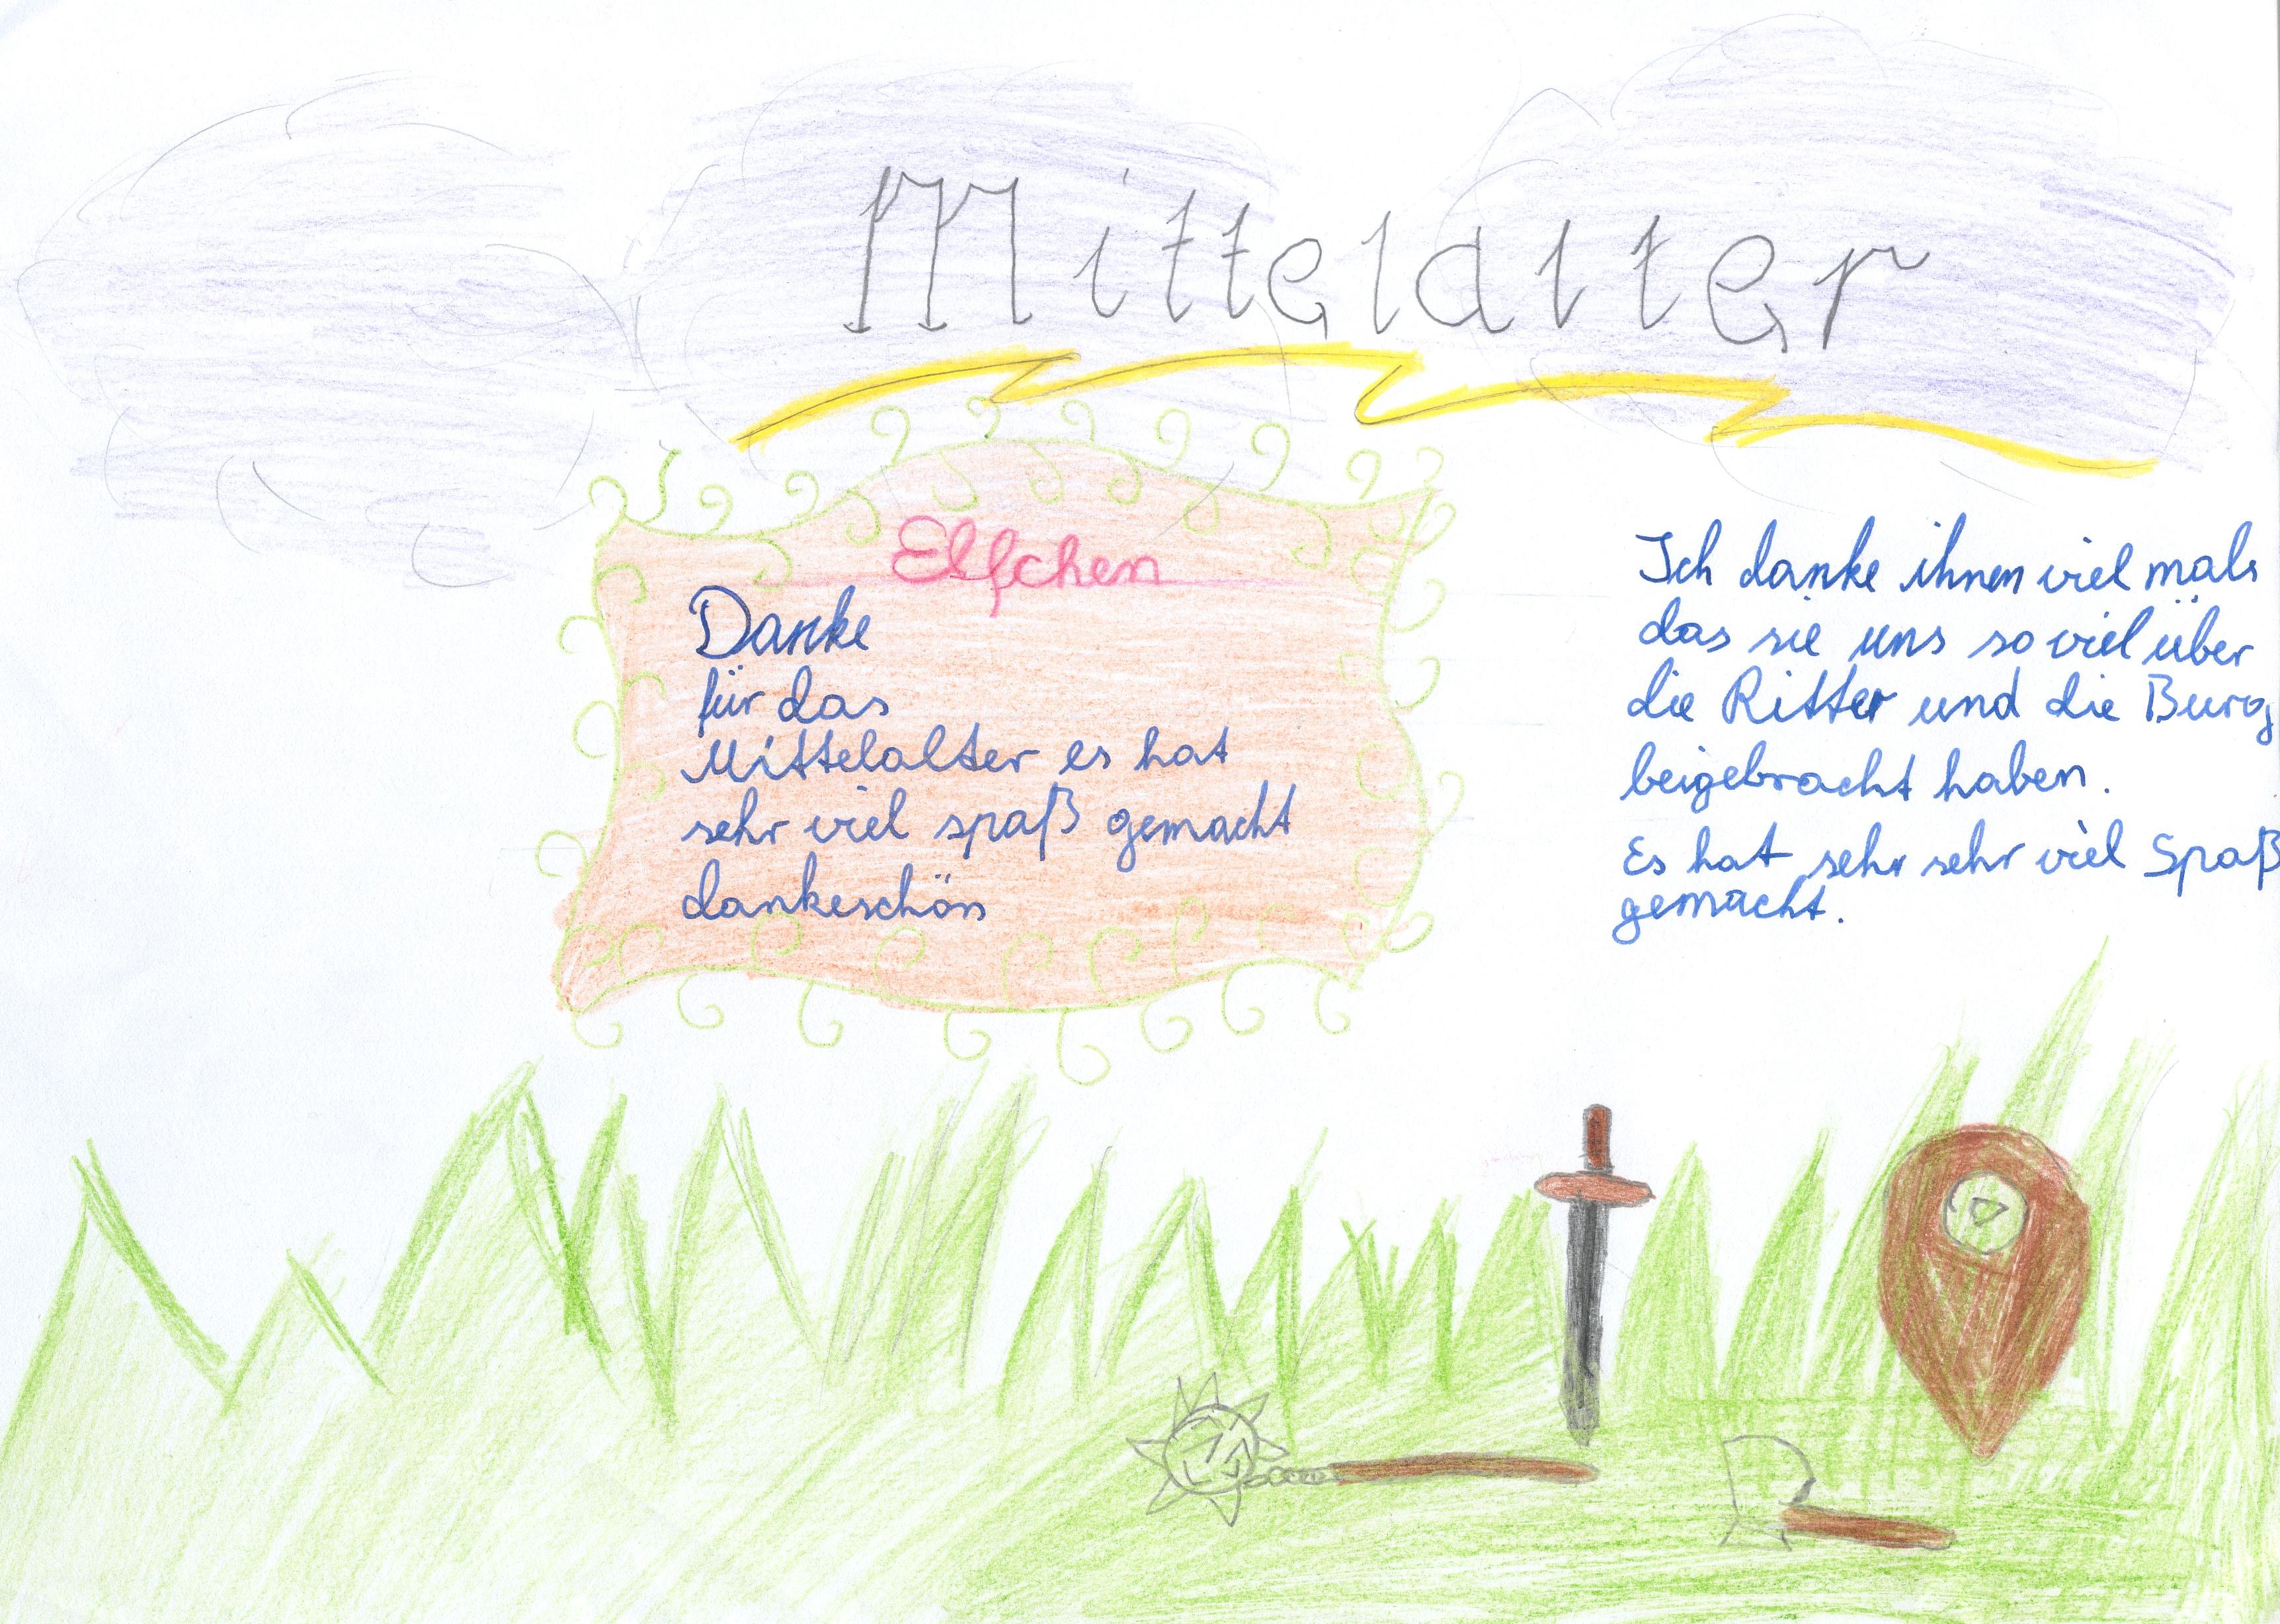 Mittelalter
Elfchen
Danke
für das
Mittelalter es hat
sehr viel spaß gemacht
dankeschön
Ich danke ihnen viel mals
das sie uns so viel über
die Ritter und die Burg
beigebracht haben.
Es hat sehr sehr viel Spaß
gemacht.